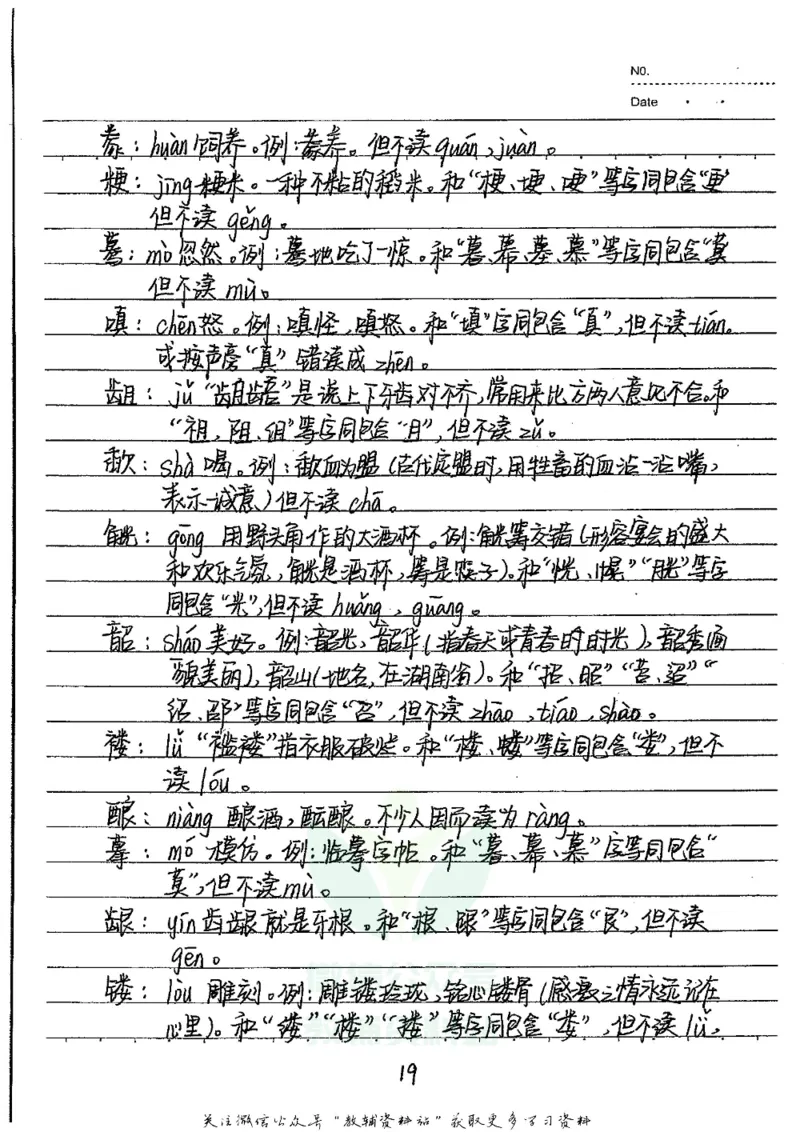 NO.
Date
豢：huàn饲养。例：豢养。但不读quán、juàn。
粳：jīng粳米。一种不粘的稻米。和“梗、埂、哽”等字同包含“更”
但不读gěng。
蓦：mò忽然。例：蓦地吃了一惊。和“暮、幕、墓、慕”等字同包含“莫
但不读mù。
嗔：chēn怒。例：嗔怪，嗔怒。和“填”字同包含“真”，但不读tián。
或按声旁“真”错读成zhēn。
龃：jǔ“龃龉”是说上下牙齿对不齐，常用来比方两人意见不合。和
“祖，阻、组”等字同包含“且”，但不读zǔ。
歃：shà喝。例：歃血为盟（古代定盟时，用牲畜的血沾一沾嘴，
表示诚意。）但不读chā。
觥：gōng 用野头角作的大酒杯。例：觥筹交错（形容宴会的盛大
和欢乐气氛，觥是酒杯，筹是筷子）。和“恍、幌”“胱”等字
同包含“光”，但不读huǎng，guāng。
韶：sháo美好。例：韶光，韶华（指春天或青春的时光），韶秀（面
貌美丽），韶山（地名，在湖南省）。和“招、昭”“苕、迢”“
绍、邵”等字同包含“召”，但不读zhāo，tiáo，shào。
褛：lǚ“褴褛”指衣服破烂。和“楼、蝼”等字同包含“娄”，但不
读lóu。
酿：niàng 酿酒，酝酿。不少人因而读为ràng。
摹：mó 模仿。例：临摹字帖。和“暮、幕、慕”字等同包含“
莫”，但不读mù。
龈：yín齿龈就是牙根。和“根、跟”等字同包含“艮”，但不读
gēn。
镂：lòu 雕刻。例：雕镂玲珑，铭心镂骨（感激之情永远记在
心里）。和“缕”“楼”“搂”等字同包含“娄”，但不读lǚ，
19
关注微信公众号“教辅资料站”获取更多学习资料